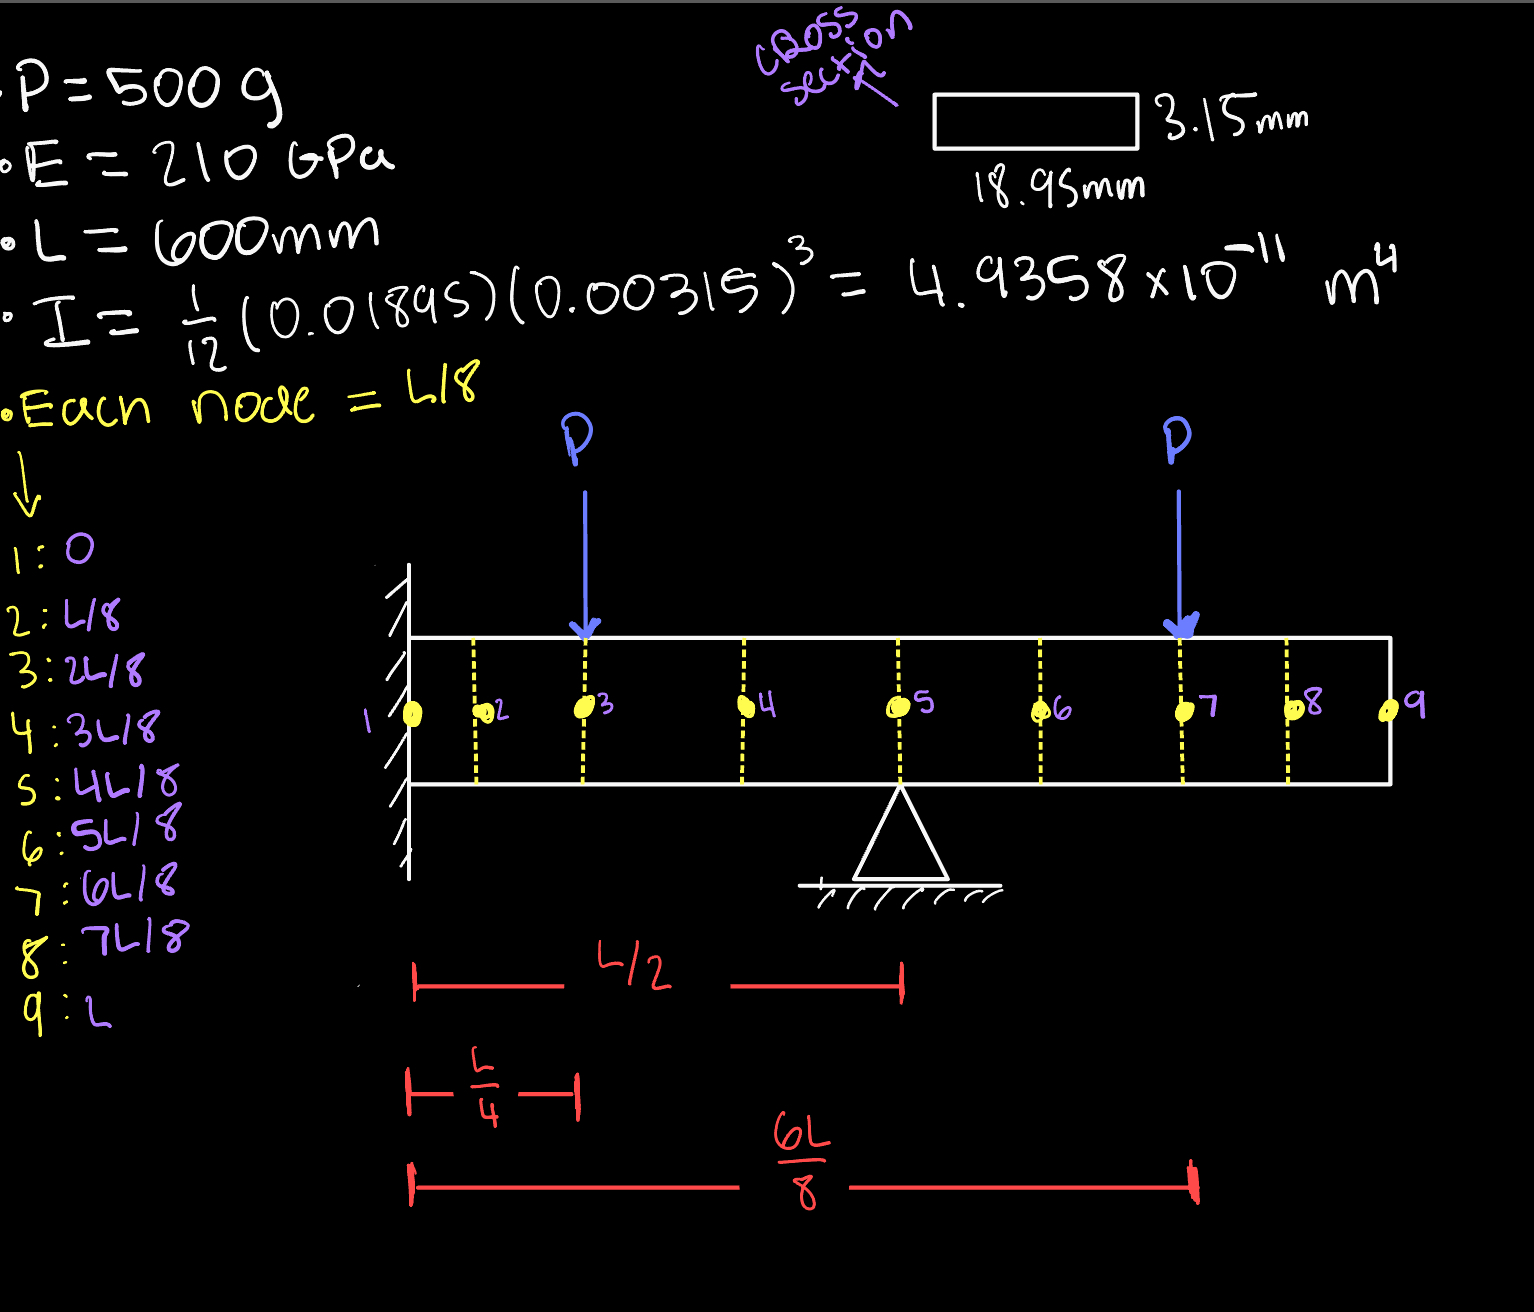 • P = 500 g
• E = 210 GPa
• L = 600mm
• I = 1/12 (0.01895)(0.00315)³ = 4.9358 x 10⁻¹¹ m⁴
cross
section
3.15mm
18.95mm
• Each node = L/8
1: 0
2: L/8
3: 2L/8
4: 3L/8
5: 4L/8
6: 5L/8
7: 6L/8
8: 7L/8
9: L
P P
1 2 3 4 5 6 7 8 9
L/2
L/4
6L/8